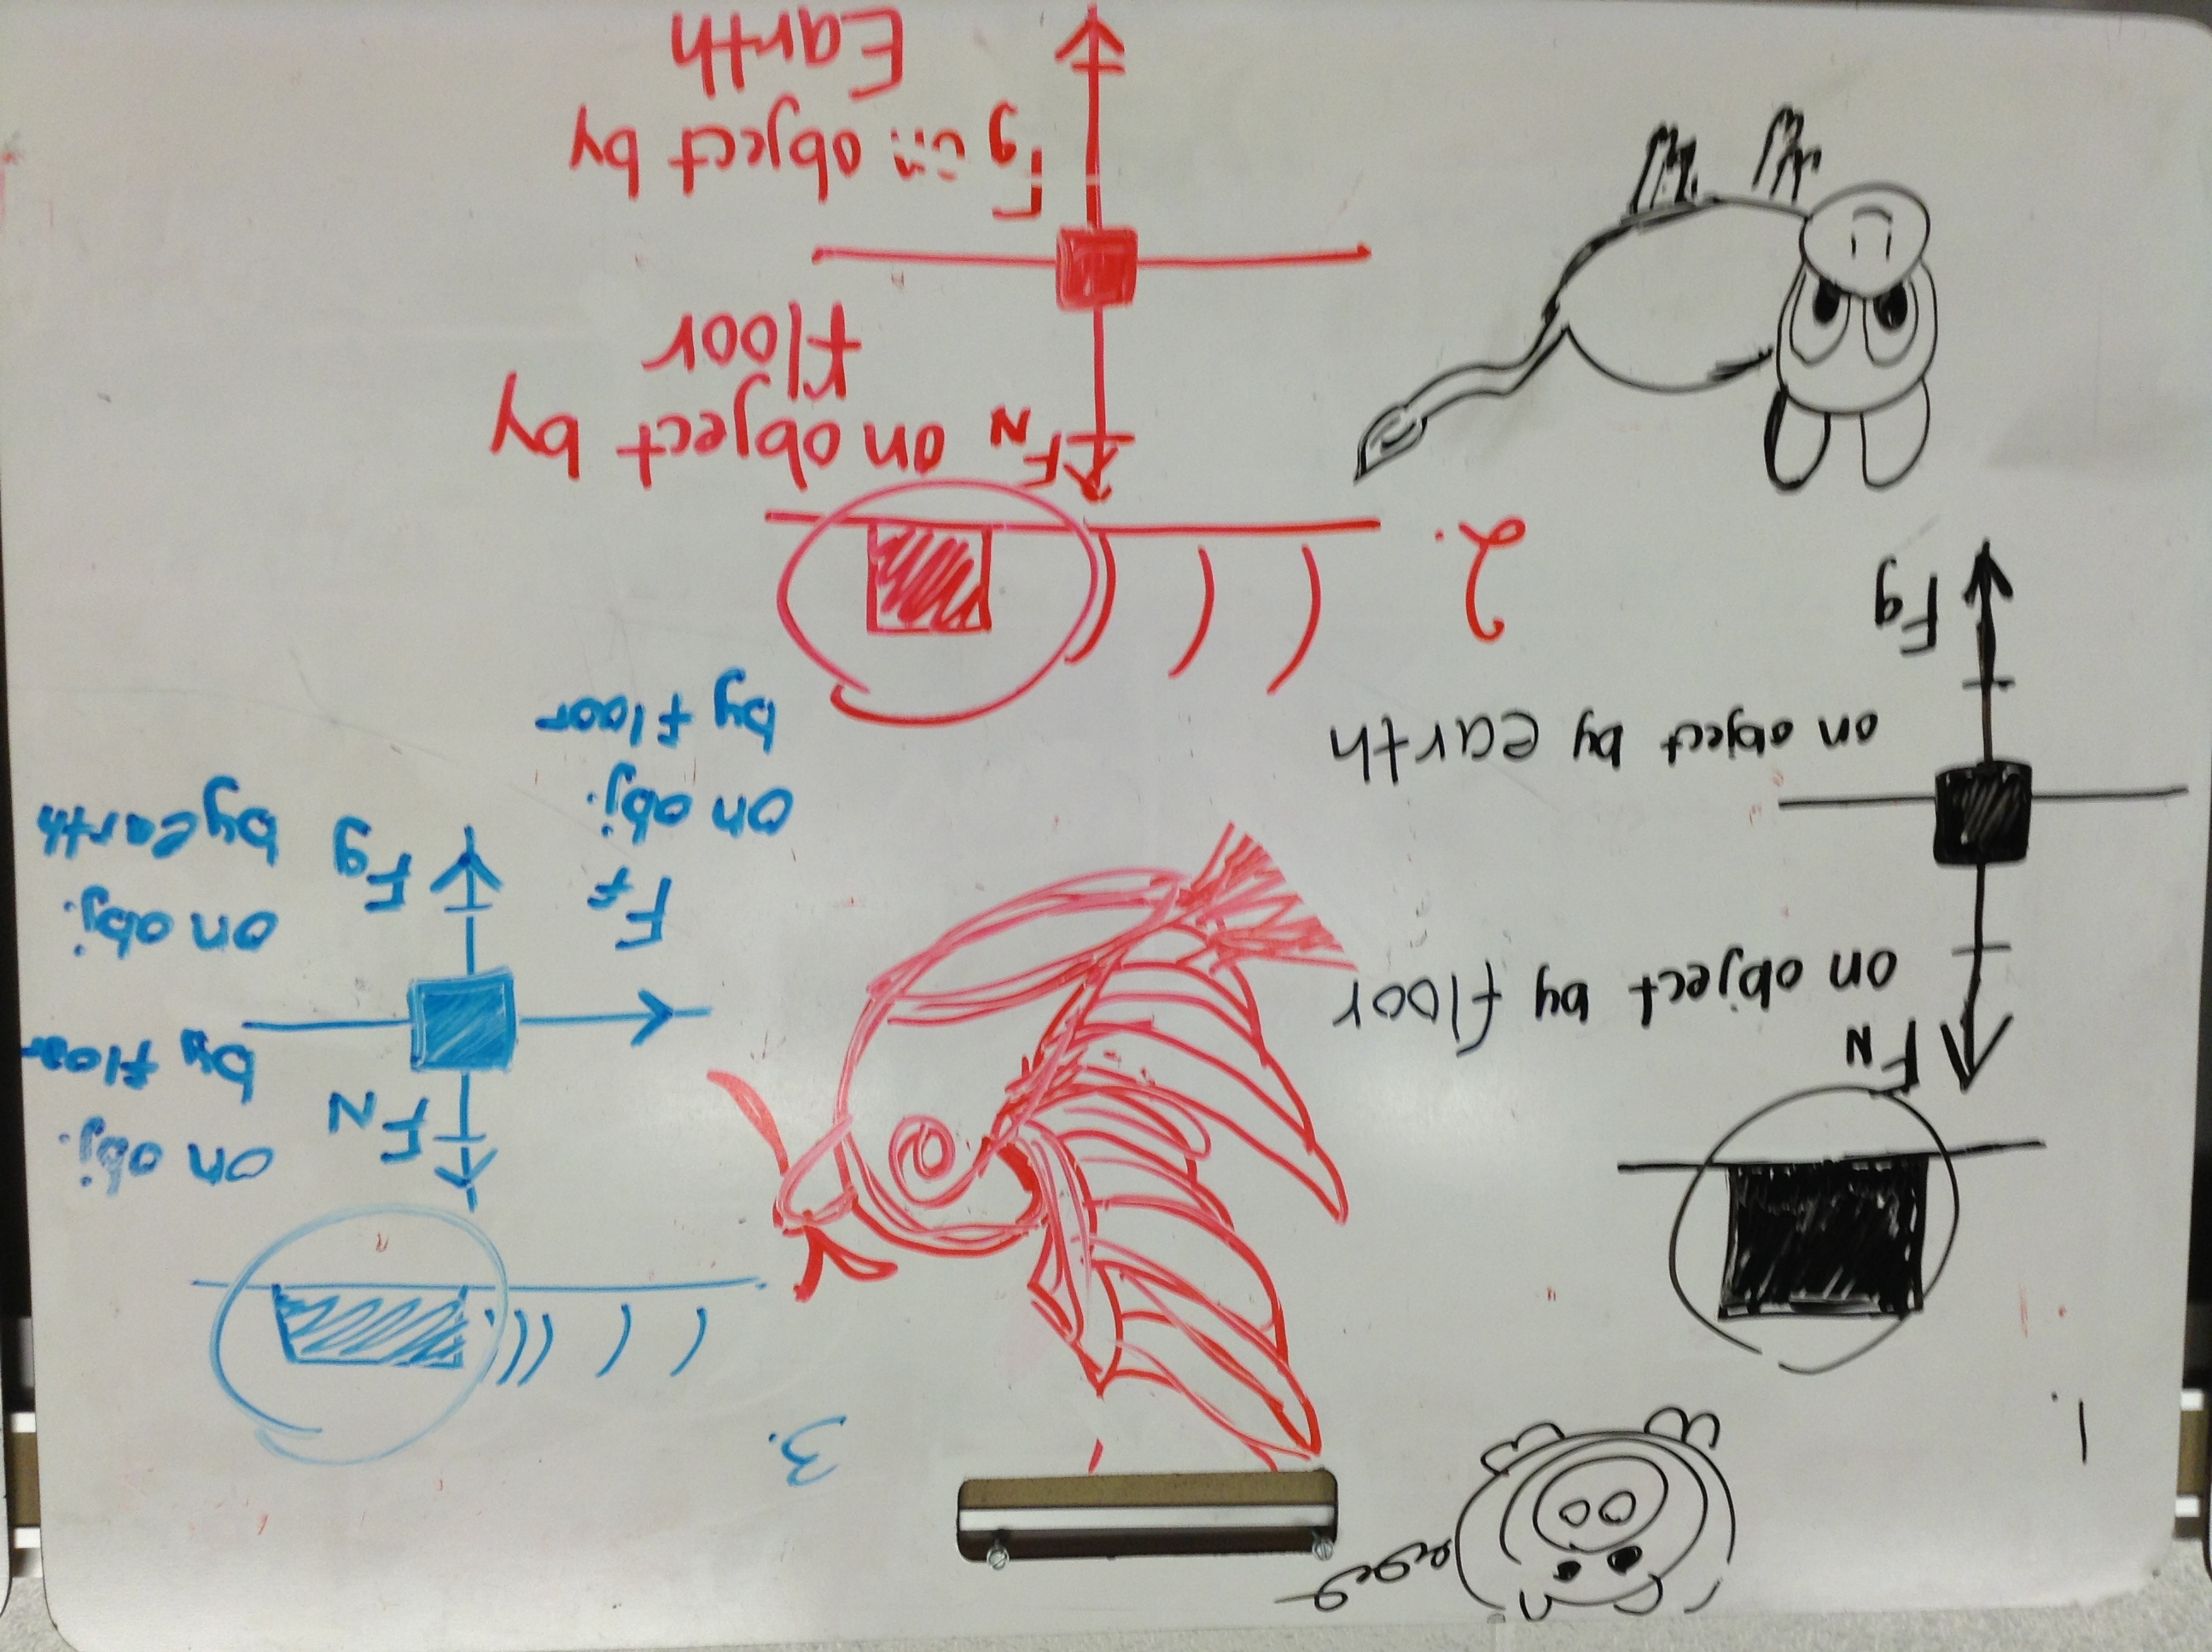 1.
F_N
on object by floor
on object by earth
Fg
2.
F_N on object by
floor
Fg on object by
Earth
3.
F_N on obj.
by floor
Fg on obj.
by earth
F_f
on obj.
by floor